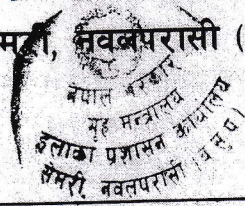 मरी, नवलपरासी (
नेपाल सरकार
गृह मन्त्रालय
इलाका प्रशासन कार्यालय
सेमरी, नवलपरासी (ब सु प)